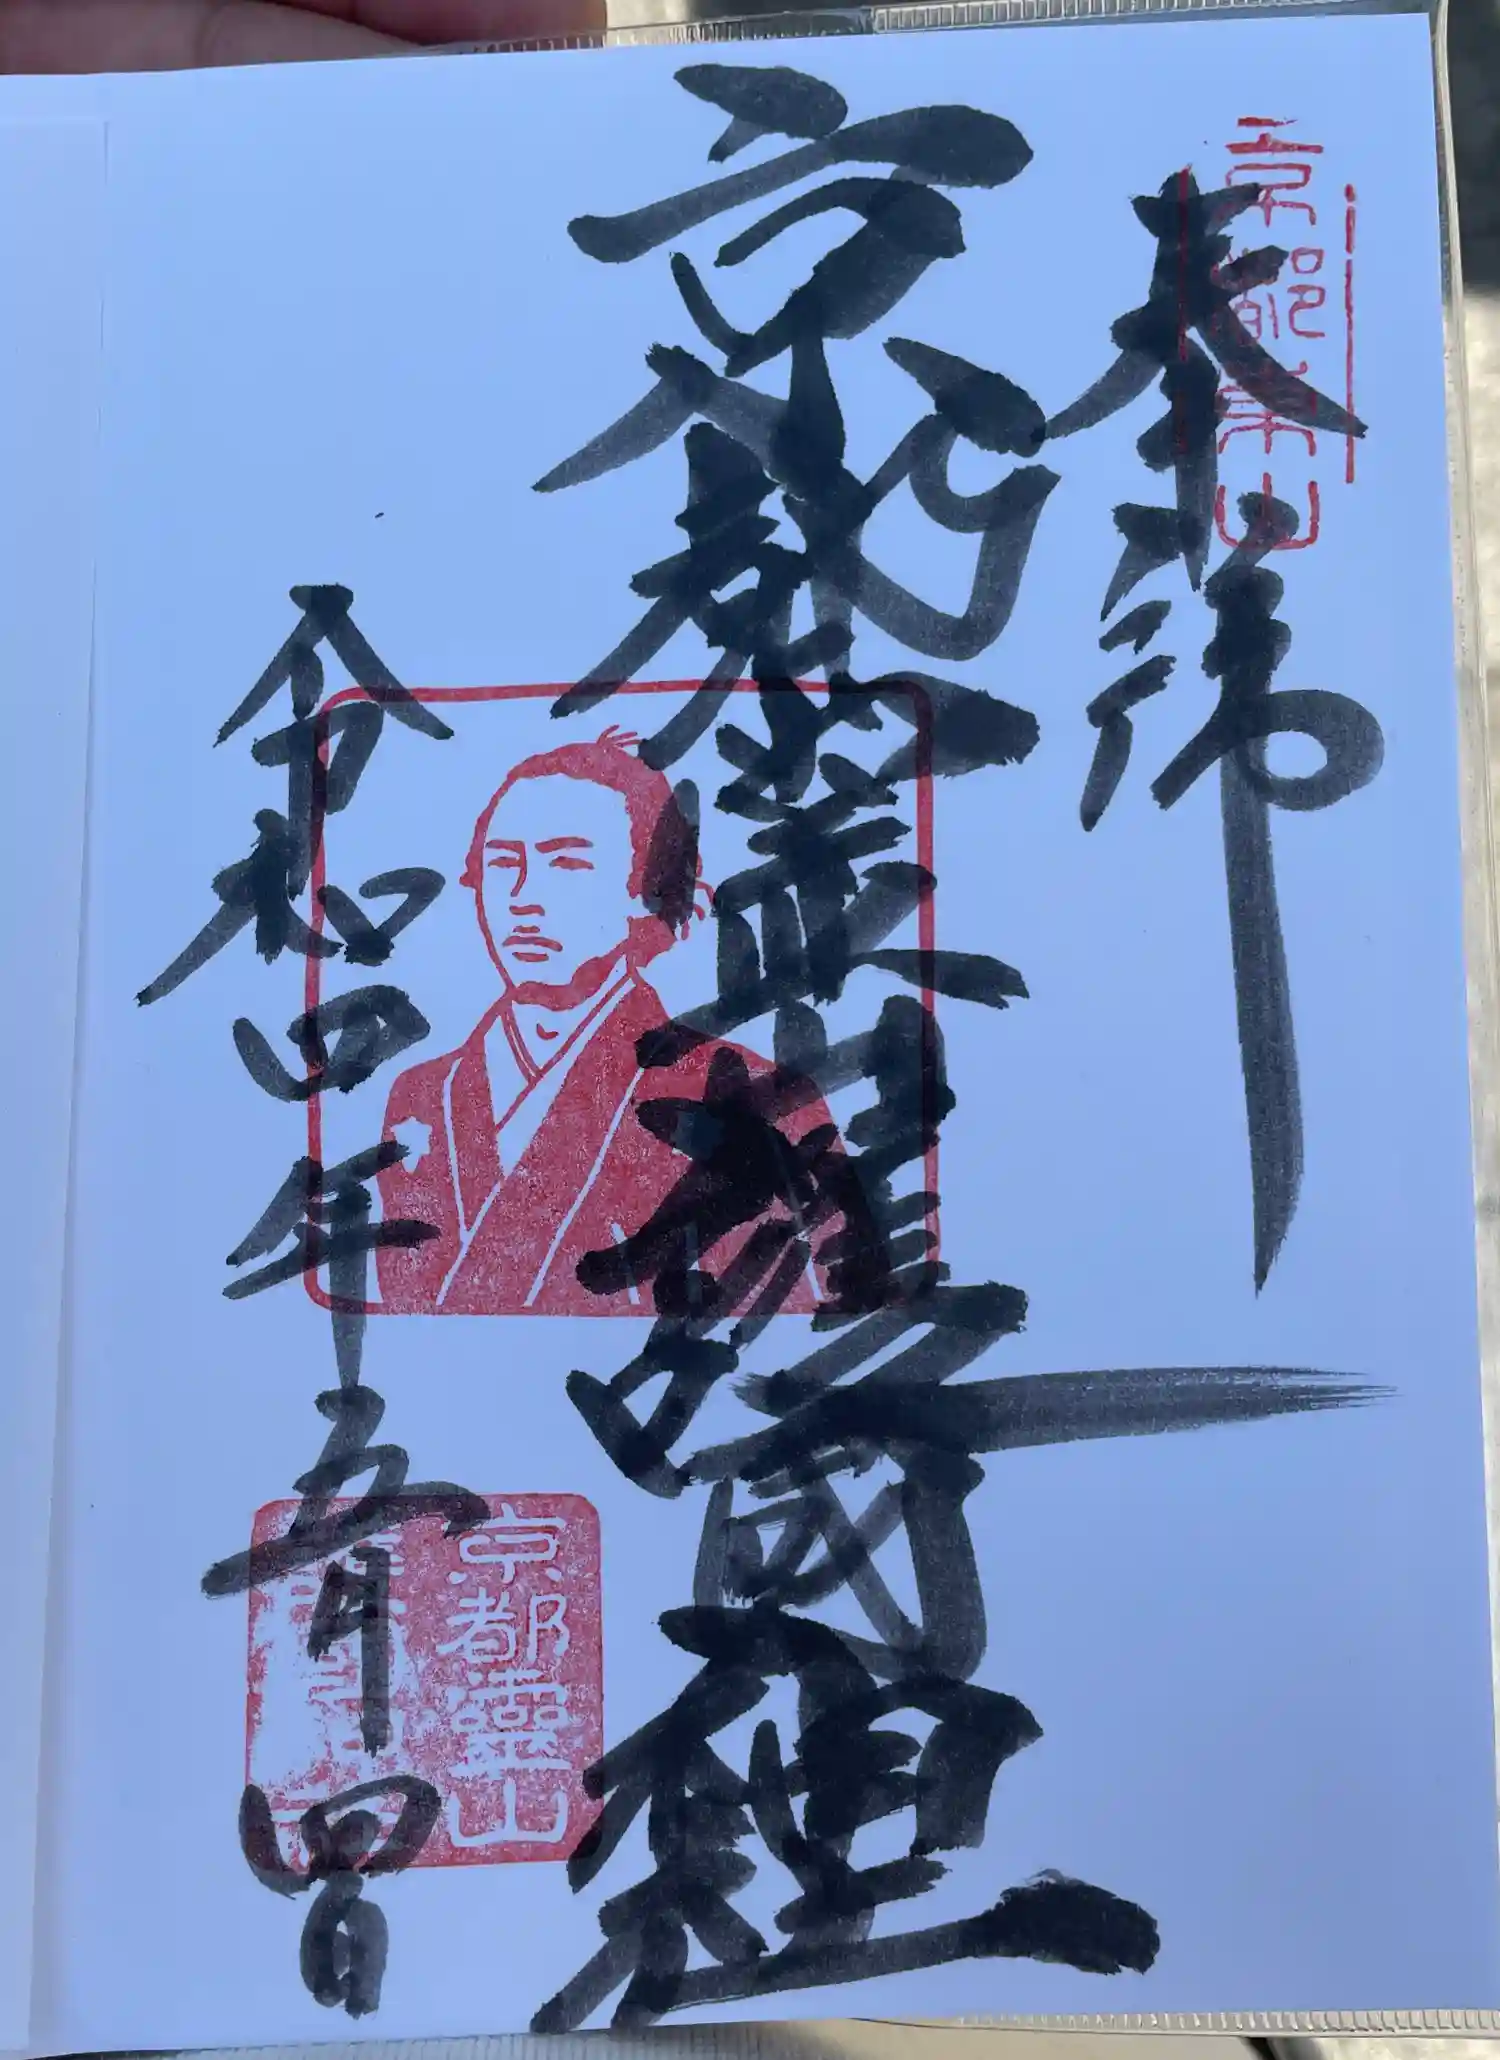 京都東山
奉拝
京都霊山護國神社
令和四年五月四日
京都靈山